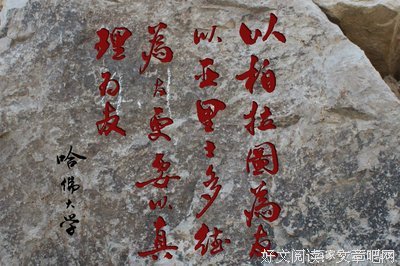 以柏拉圖為友
以亚里士多德
為友更要以真
理为友
哈佛大学
好文阅读
文章吧网